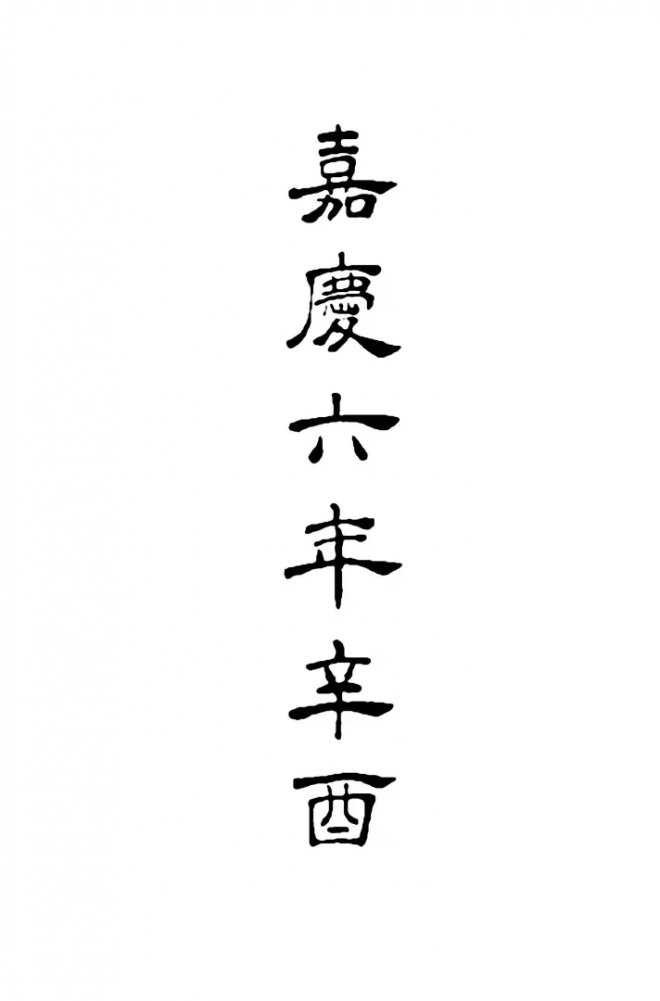 嘉慶六年辛酉